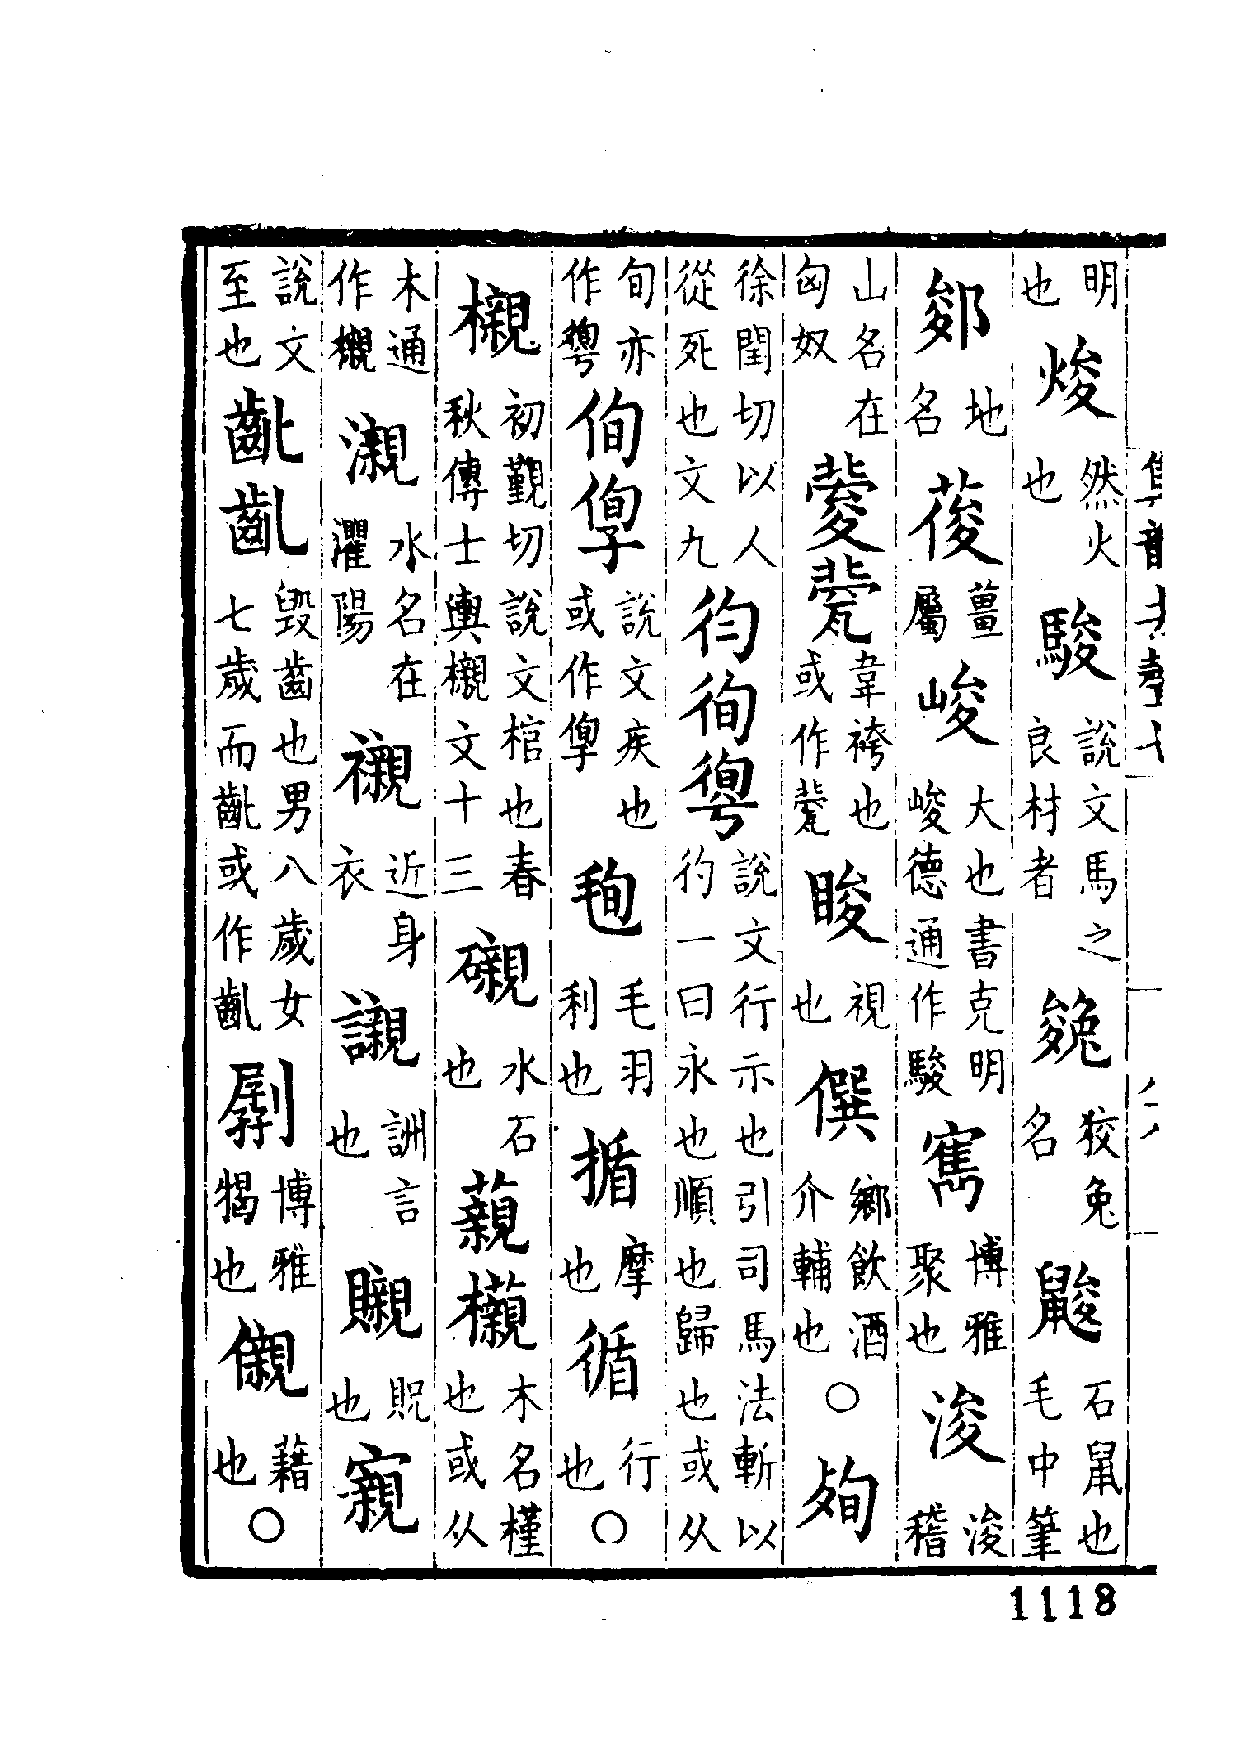 明也焌然火也駿說文馬之良材者㕙狡兔名鼭石鼠也毛中筆
鄒地名葰薑屬峻大也書克明峻德通作駿寯博雅聚也浚浚稽
山名在匈奴㽙㼱韋袴也或作㼱睃視也僎鄉飲酒介輔也○殉
徐閏切以人從死也文九彴徇䙬說文行示也引司馬法斬以彴一曰永也順也歸也或从
旬亦作䙬侚㝁說文疾也或作㝁毥毛羽利也揗摩也循行也○
櫬初覲切說文棺也春秋傳士輿櫬文十三䃰水石也藽㰔木名槿也或从
木通作櫬瀙水名在灈陽襯近身衣讖詶言也䞋貺也寴
說文至也齔齓毀齒也男八歲女七歲而齔或作齓㓩博雅犗也儭藉也○
集韻去聲七
1118